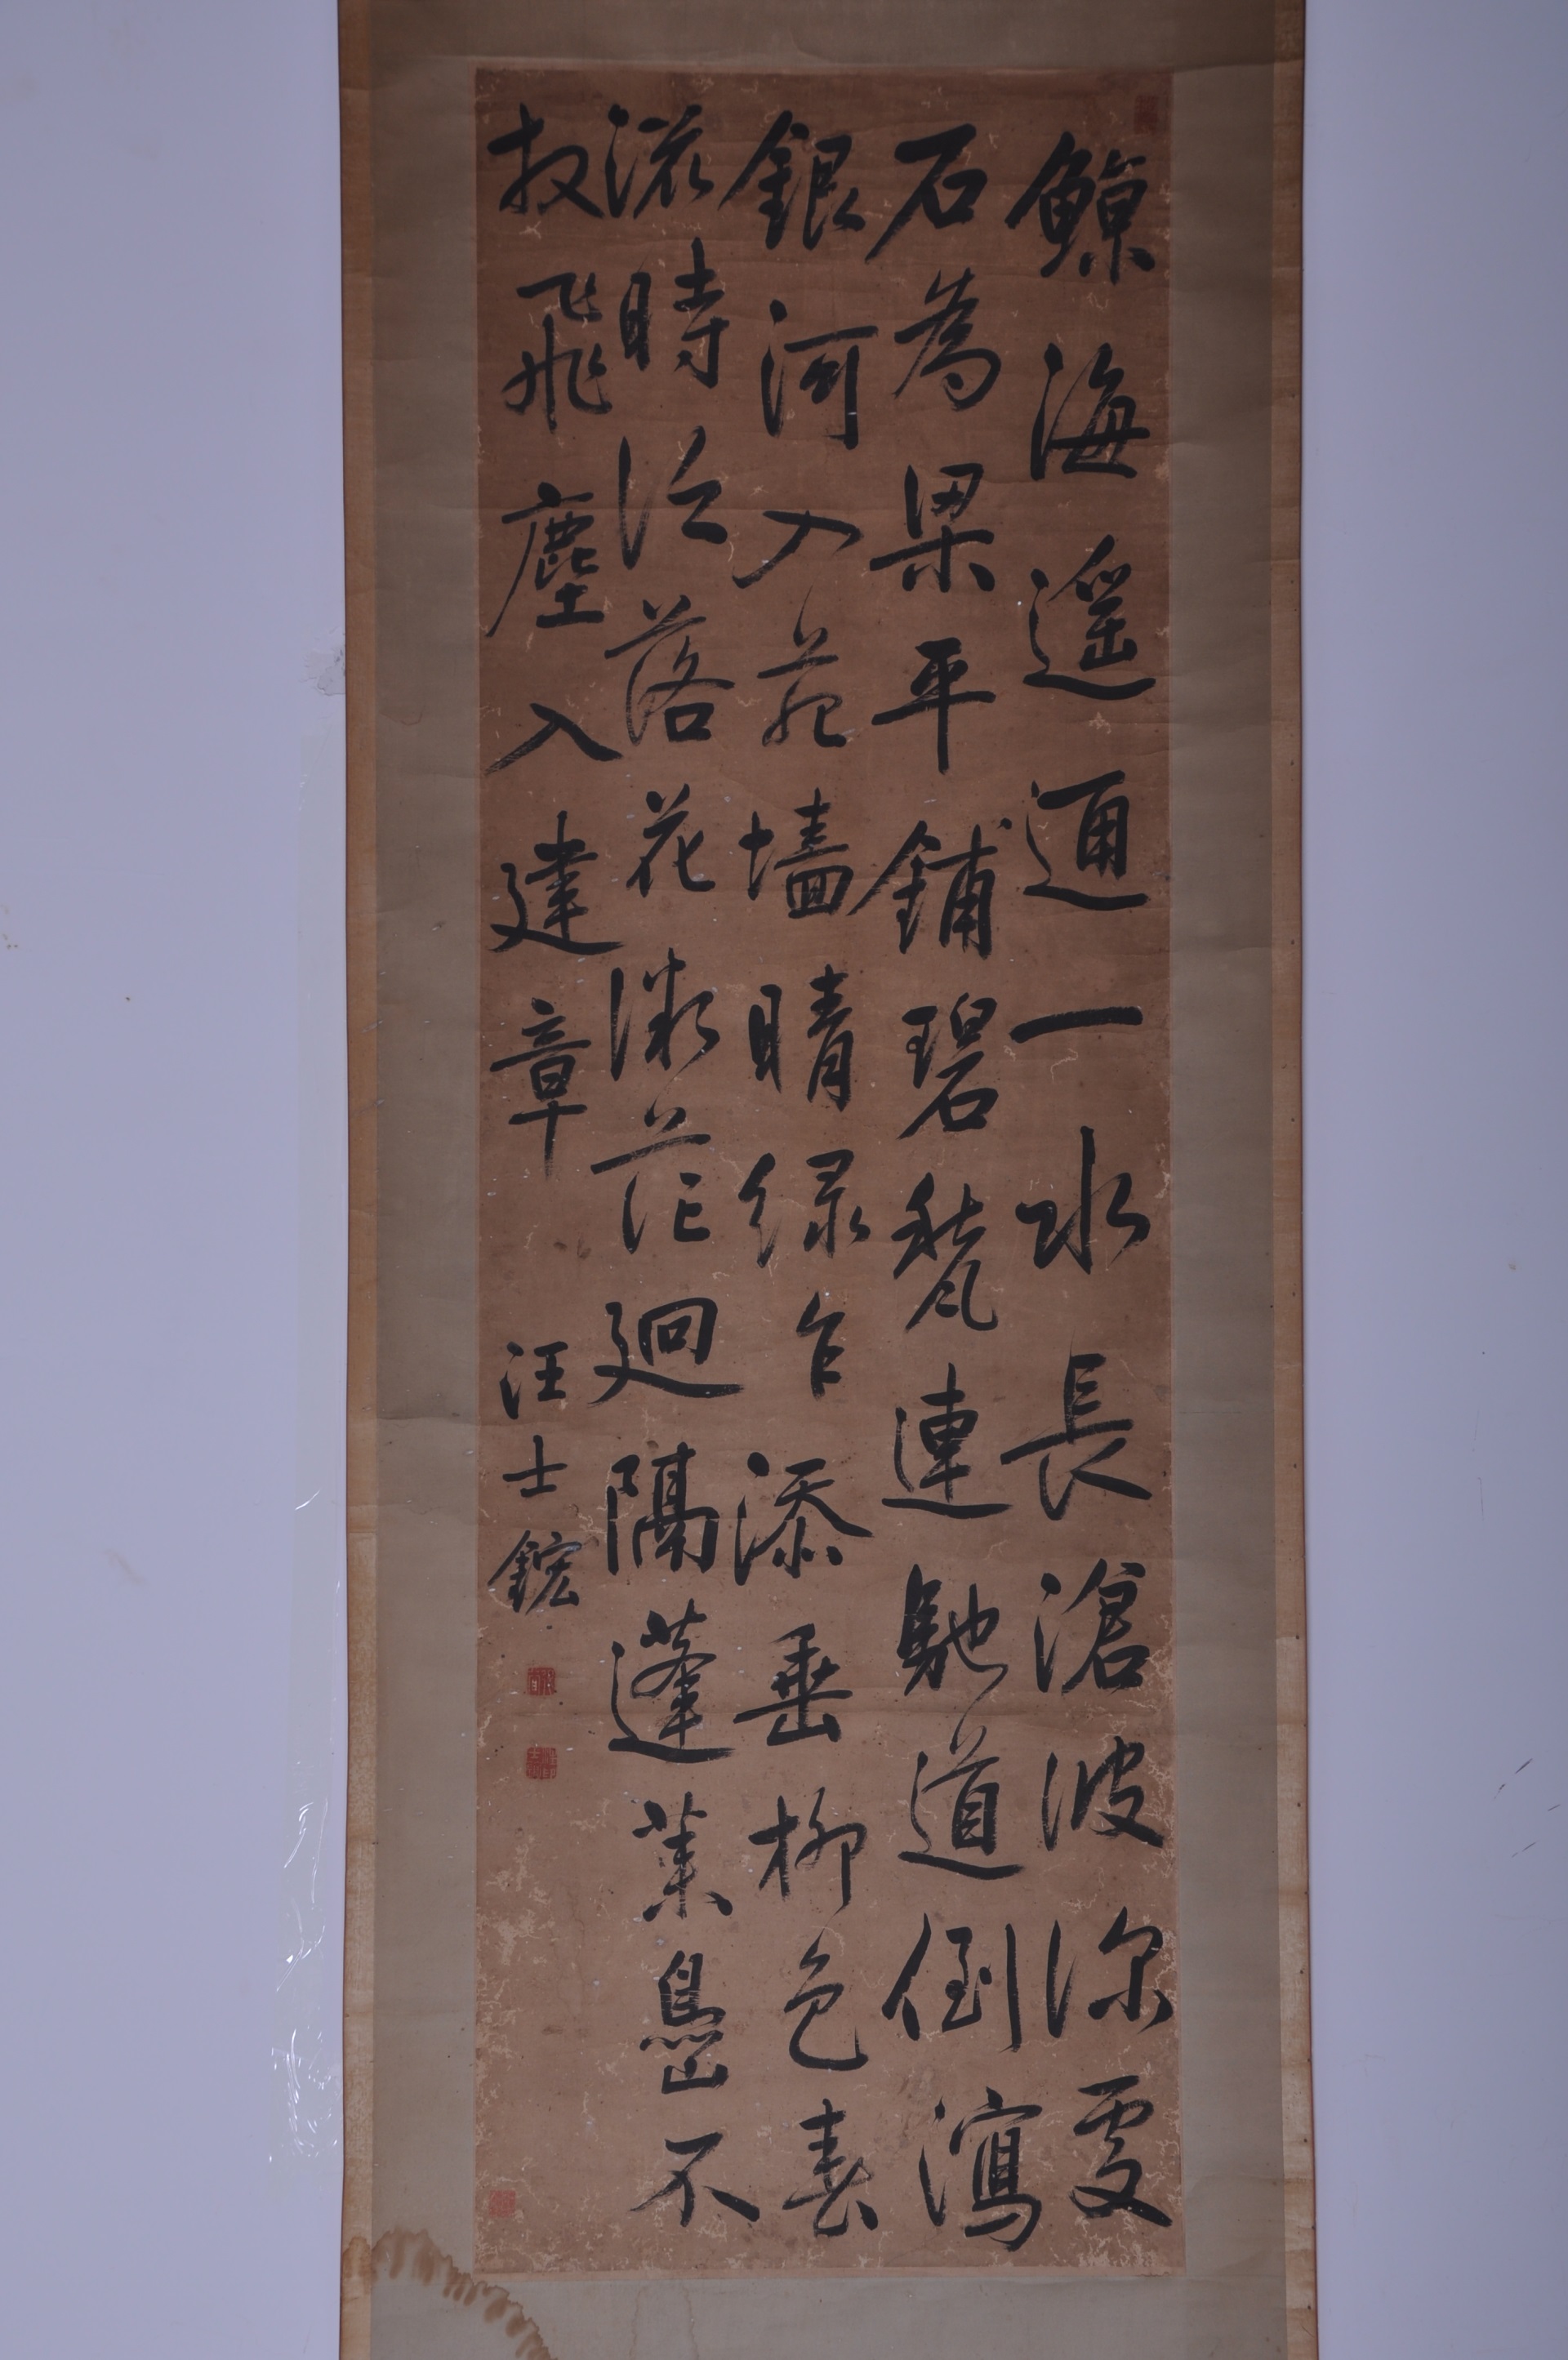 鯨海遥通一水長滄波深處
石為梁平鋪碧甃連馳道倒瀉
銀河入苑墻晴綠乍添垂柳色春
流時泛落花香微茫迴隔蓬萊島不
放飛塵入建章
汪士鋐